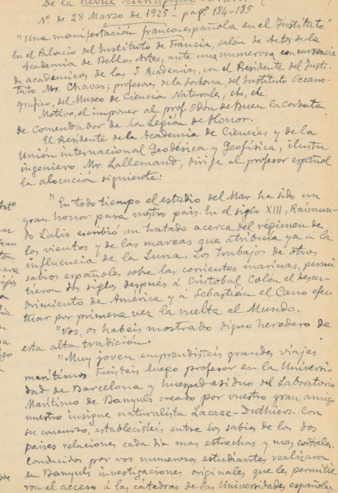 De la Revue Scientifique
Nº de 28 Marzo de 1925 - pag. 184-185
"Una manifestación franco-española en el Instituto"
En el Palacio del Instituto de Francia, salón de Actos de la
Academia de Bellas Artes, ante una numerosa concurrencia
de académicos de las 5 Academias, con el Presidente del Insti-
tuto Mr. Chavas; profesores de la Sorbona, del Instituto Oceano-
gráfico, del Museo de Ciencias Naturales, etc, etc.
Motivo, el imponer al prof. Odón de Buen la corbata
de Comendador de la Legión de Honor.
El Presidente de la Academia de Ciencias y de la
Unión internacional Geodésica y Geofísica, ilustre
ingeniero Mr. Lallemand, dirige al profesor español
la alocución siguiente:
"En todo tiempo el estudio del Mar ha sido un
gran honor para vuestro pais. En el siglo XIII, Raimun-
do Lulio escribió un tratado acerca del régimen de
los vientos y de las mareas que atribuía ya a la
influencia de la Luna. Los trabajos de otros
sabios españoles sobre las corrientes marinas, permi
tieron dos siglos después a Cristobal Colón el descu-
brimiento de América y a Sebastián el Cano efec-
tuar por primera vez la vuelta el Mundo.
"Vos, os habéis mostrado digno heredero de
esta alta tradición.
"Muy joven emprendisteis grandes viajes
marítimos. Fuisteis luego profesor en la Universi-
dad de Barcelona y huesped asiduo del Laboratorio
Marítimo de Banyuls creado por vuestro gran amigo
nuestro insigne naturalista Lacaze-Duthiers. Con
su concurso, establecisteis entre los sabios de los dos
paises relaciones cada dia mas estrechas y mas cordiales.
Conducidos por vos numerosos estudiantes, realizaron
en Banyuls investigaciones originales que les permitie
ron el acceso á las cátedras de las Universidades españolas.